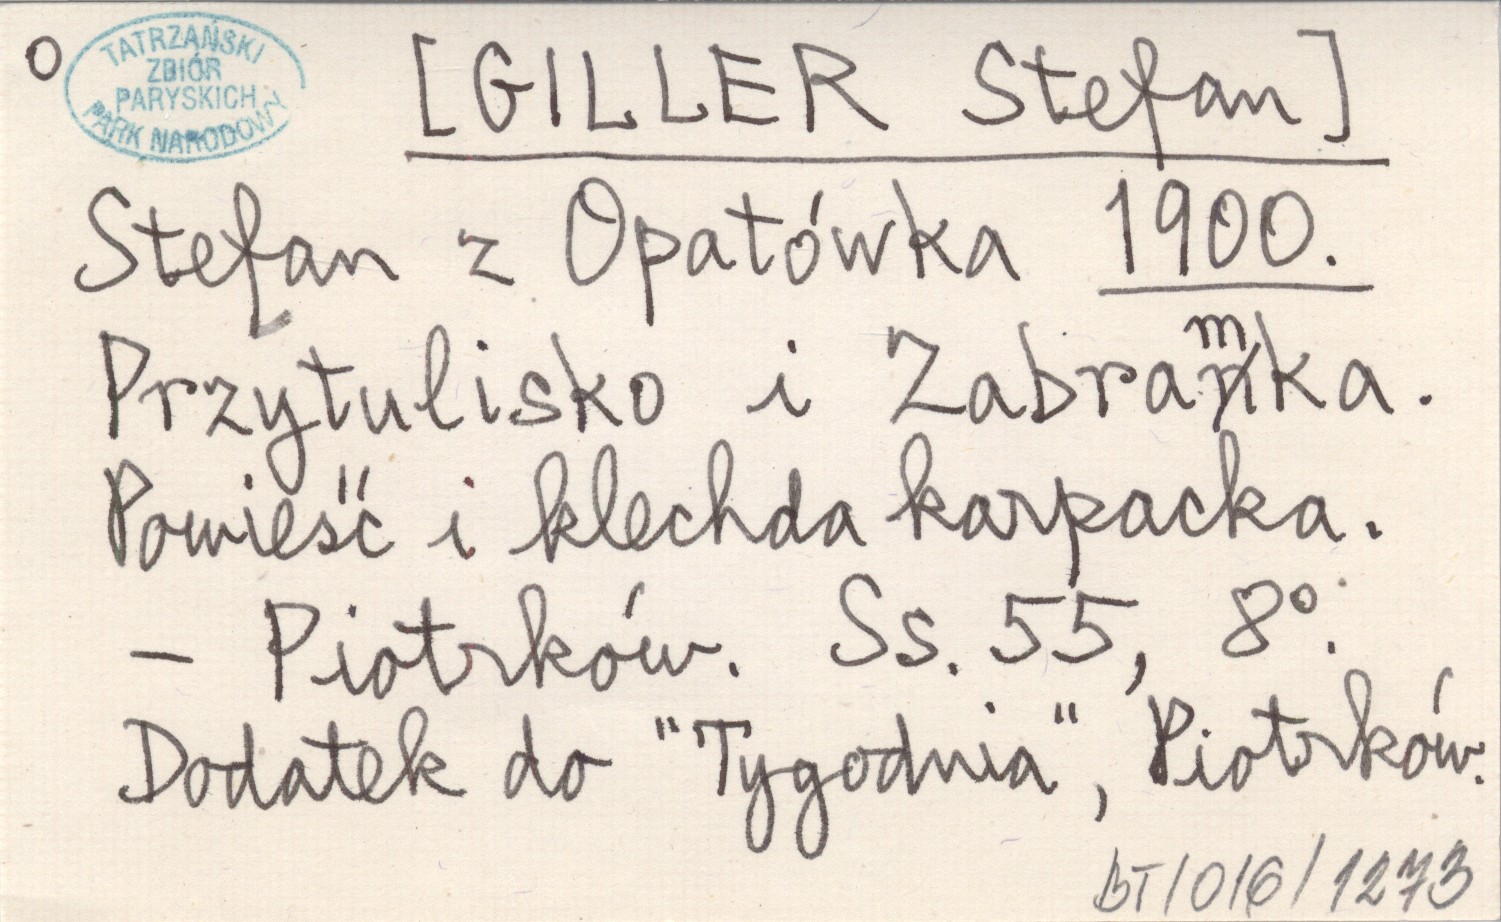 O
TATRZAŃSKI
ZBIÓR
PARYSKICH
PARK NARODOWY
[GILLER Stefan]
Stefan z Opatówka 1900.
Przytulisko i Zabramka.
Powieść i klechda karpacka.
– Piotrków. Ss. 55, 8°.
Dodatek do "Tygodnia", Piotrków.
BT/016/1273